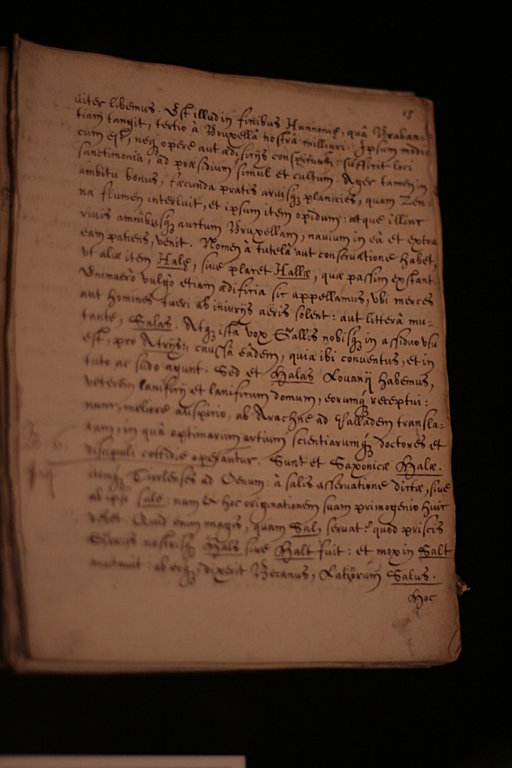 15
uiter libemus. Est illud in finibus Hannoniæ, quâ Braban-
tiam tangit, tertio à Bruxellâ nostrâ milliari. Ipsum modi-
cum est, neq; opere aut ædificijs conspicuum: sufficit loci
sanctimonia, ad præsidium simul et cultum. Ager tamen in
ambitu bonus, fæcunda pratis aruisq; planicies, quam Zen-
na flumen interluit, et ipsum item opidum: atque illinc
riuis amnibusq; auctum Bruxellam, nauium in eâ et extra
eam patiens, venit. Nomen à tutelâ aut conseruatione habet,
vt aliæ item Halæ, siue placet Hallæ, quæ passim exstant.
Enimuerò vulgò etiam ædificia sic appellamus, vbi merces
aut homines tueri ab iniurijs aëris solent: aut litterâ mu-
tante, Salas. Atq; ista vox Gallis nobisq; in assiduo vsu
est, pro Atrijs; caussâ eâdem, quia ibi conuentus, et in
tuto ac sudo agunt. Sed et Halas Louanij habemus,
veterem lanificij et lanificum domum, eorumq; receptui:
nunc, meliore auspicio, ab Arachne ad Palladem transla-
tam, in quâ optimarum artium scientiarumq; doctores et
discipuli cottidie operantur. Sunt et Saxonicæ Halæ.
itemq; Tirolenses ad Oenum: à salis asseruatione dictæ, siue
ab ipso sale: nam & hoc originationem suam primogenio huic
debet. Quid enim magis, quam Sal, seruat? quod priscis
Græcis nostrisq; Hals siue Halt fuit: et mox in Salt
mutauit: ab eoq;, dixerit Becanus, Latinorum Salus.
Hoc